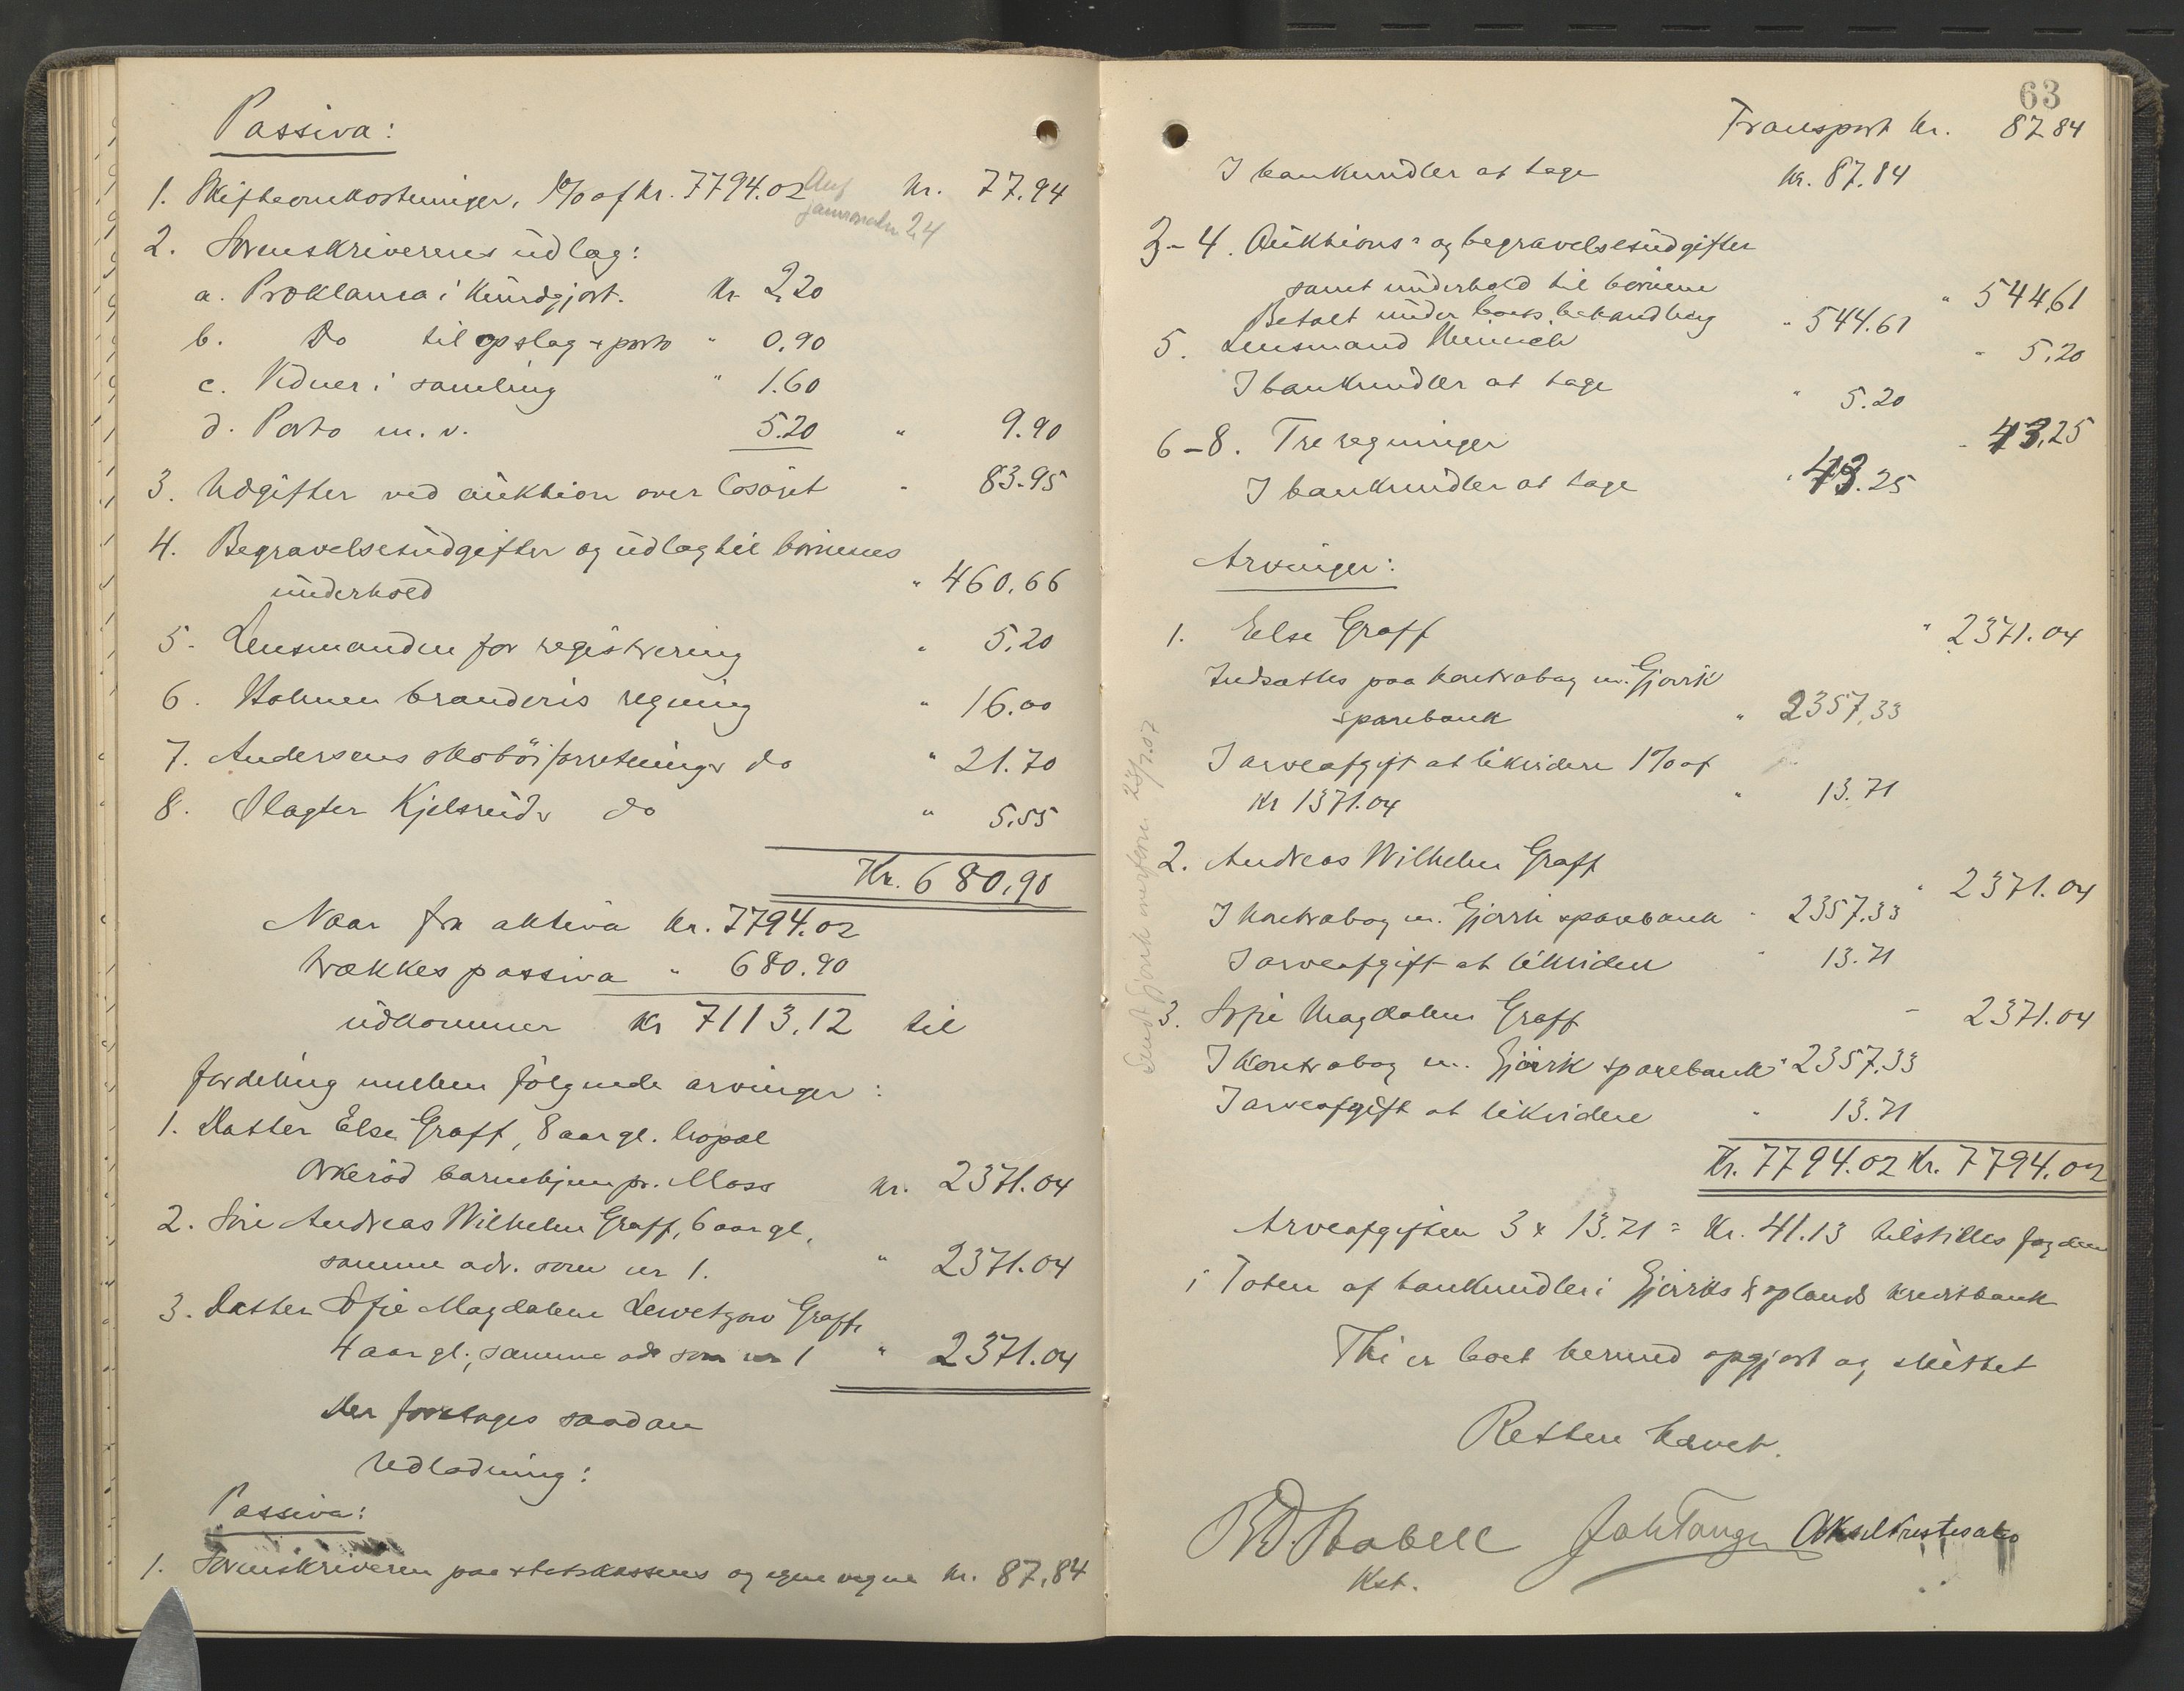 Passiva:
1. Skifteomkostninger, 1% af kr. 7794.02 kr. 77.94
2. Sorenskriverens udlæg:
a. Proklama i Kundgjort. kr 2,20
b. Do til opslag + porto " 0.90
c. Vidner i samling " 1.60
d. Porto m. v. 5.20 " 9.90
3. Udgifter ved auktion over løsøret " 83.95
4. Begravelsesudgifter og udlæg til børnenes
underhold " 460.66
5. Lensmanden for registrering " 5.20
6. Holmen branderis regning " 16.00
7. Andersens skotøiforretnings do " 21.70
8. Slagter Kjelsruds do " 5.55
Kr. 680,90
Naar fra aktiva kr. 7794.02
trækkes passiva " 680.90
udkommer kr 7113.12 til
fordeling mellem følgende arvinger:
1. Datter Else Graff, 8 aar gl. hvopal
Orkerød barnehjem pr. Moss kr. 2371.04
2. Søn Andreas Wilhelm Graff, 6 aar gl,
samme adr. som nr 1. " 2371.04
3. Datter Sofie Magdalene Lewetzow Graff,
4 aar gl., samme adr som nr 1 " 2371.04
Der foretages saadan
Udlodning:
Passiva:
1. Sorenskriveren paa statskassens og egne vegne kr. 87,84
63
Transport kr. 87 84
I bankmidler at tage kr. 87.84
3-4. Auktions- og begravelsesudgifter
samt underhold til børnene " 544,61
Betalt under boets behandling " 544.61
5. Lensmand " 5.20
I bankmidler at tage " 5.20
6-8. Tre regninger " 43,25
I bankmidler at tage " 43.25
Arvinger:
1. Else Graff " 2371.04
Indsættes paa kontrabog m. Gjøvik
sparebank " 2357,33
I arveafgift at likvidere 1% af
kr 1371.04 " 13.71
2. Andreas Wilhelm Graff " 2371.04
I kontrabog m. Gjøvik sparebank " 2357.33
I arveafgift at likvidere " 13.71
3. Sofie Magdalene Graff " 2371.04
I kontrabog m. Gjøvik sparebank " 2357.33
I arveafgift at likvidere " 13.71
Kr. 7794.02 Kr. 7794.02
Arveafgiften 3 x 13.71 = kr. 41.13 tilstilles fogden
i Toten af bankmidler i Gjøviks & oplands kreditbank
Thi er boet hermed opgjort og sluttet
Retten hævet.
Kst.